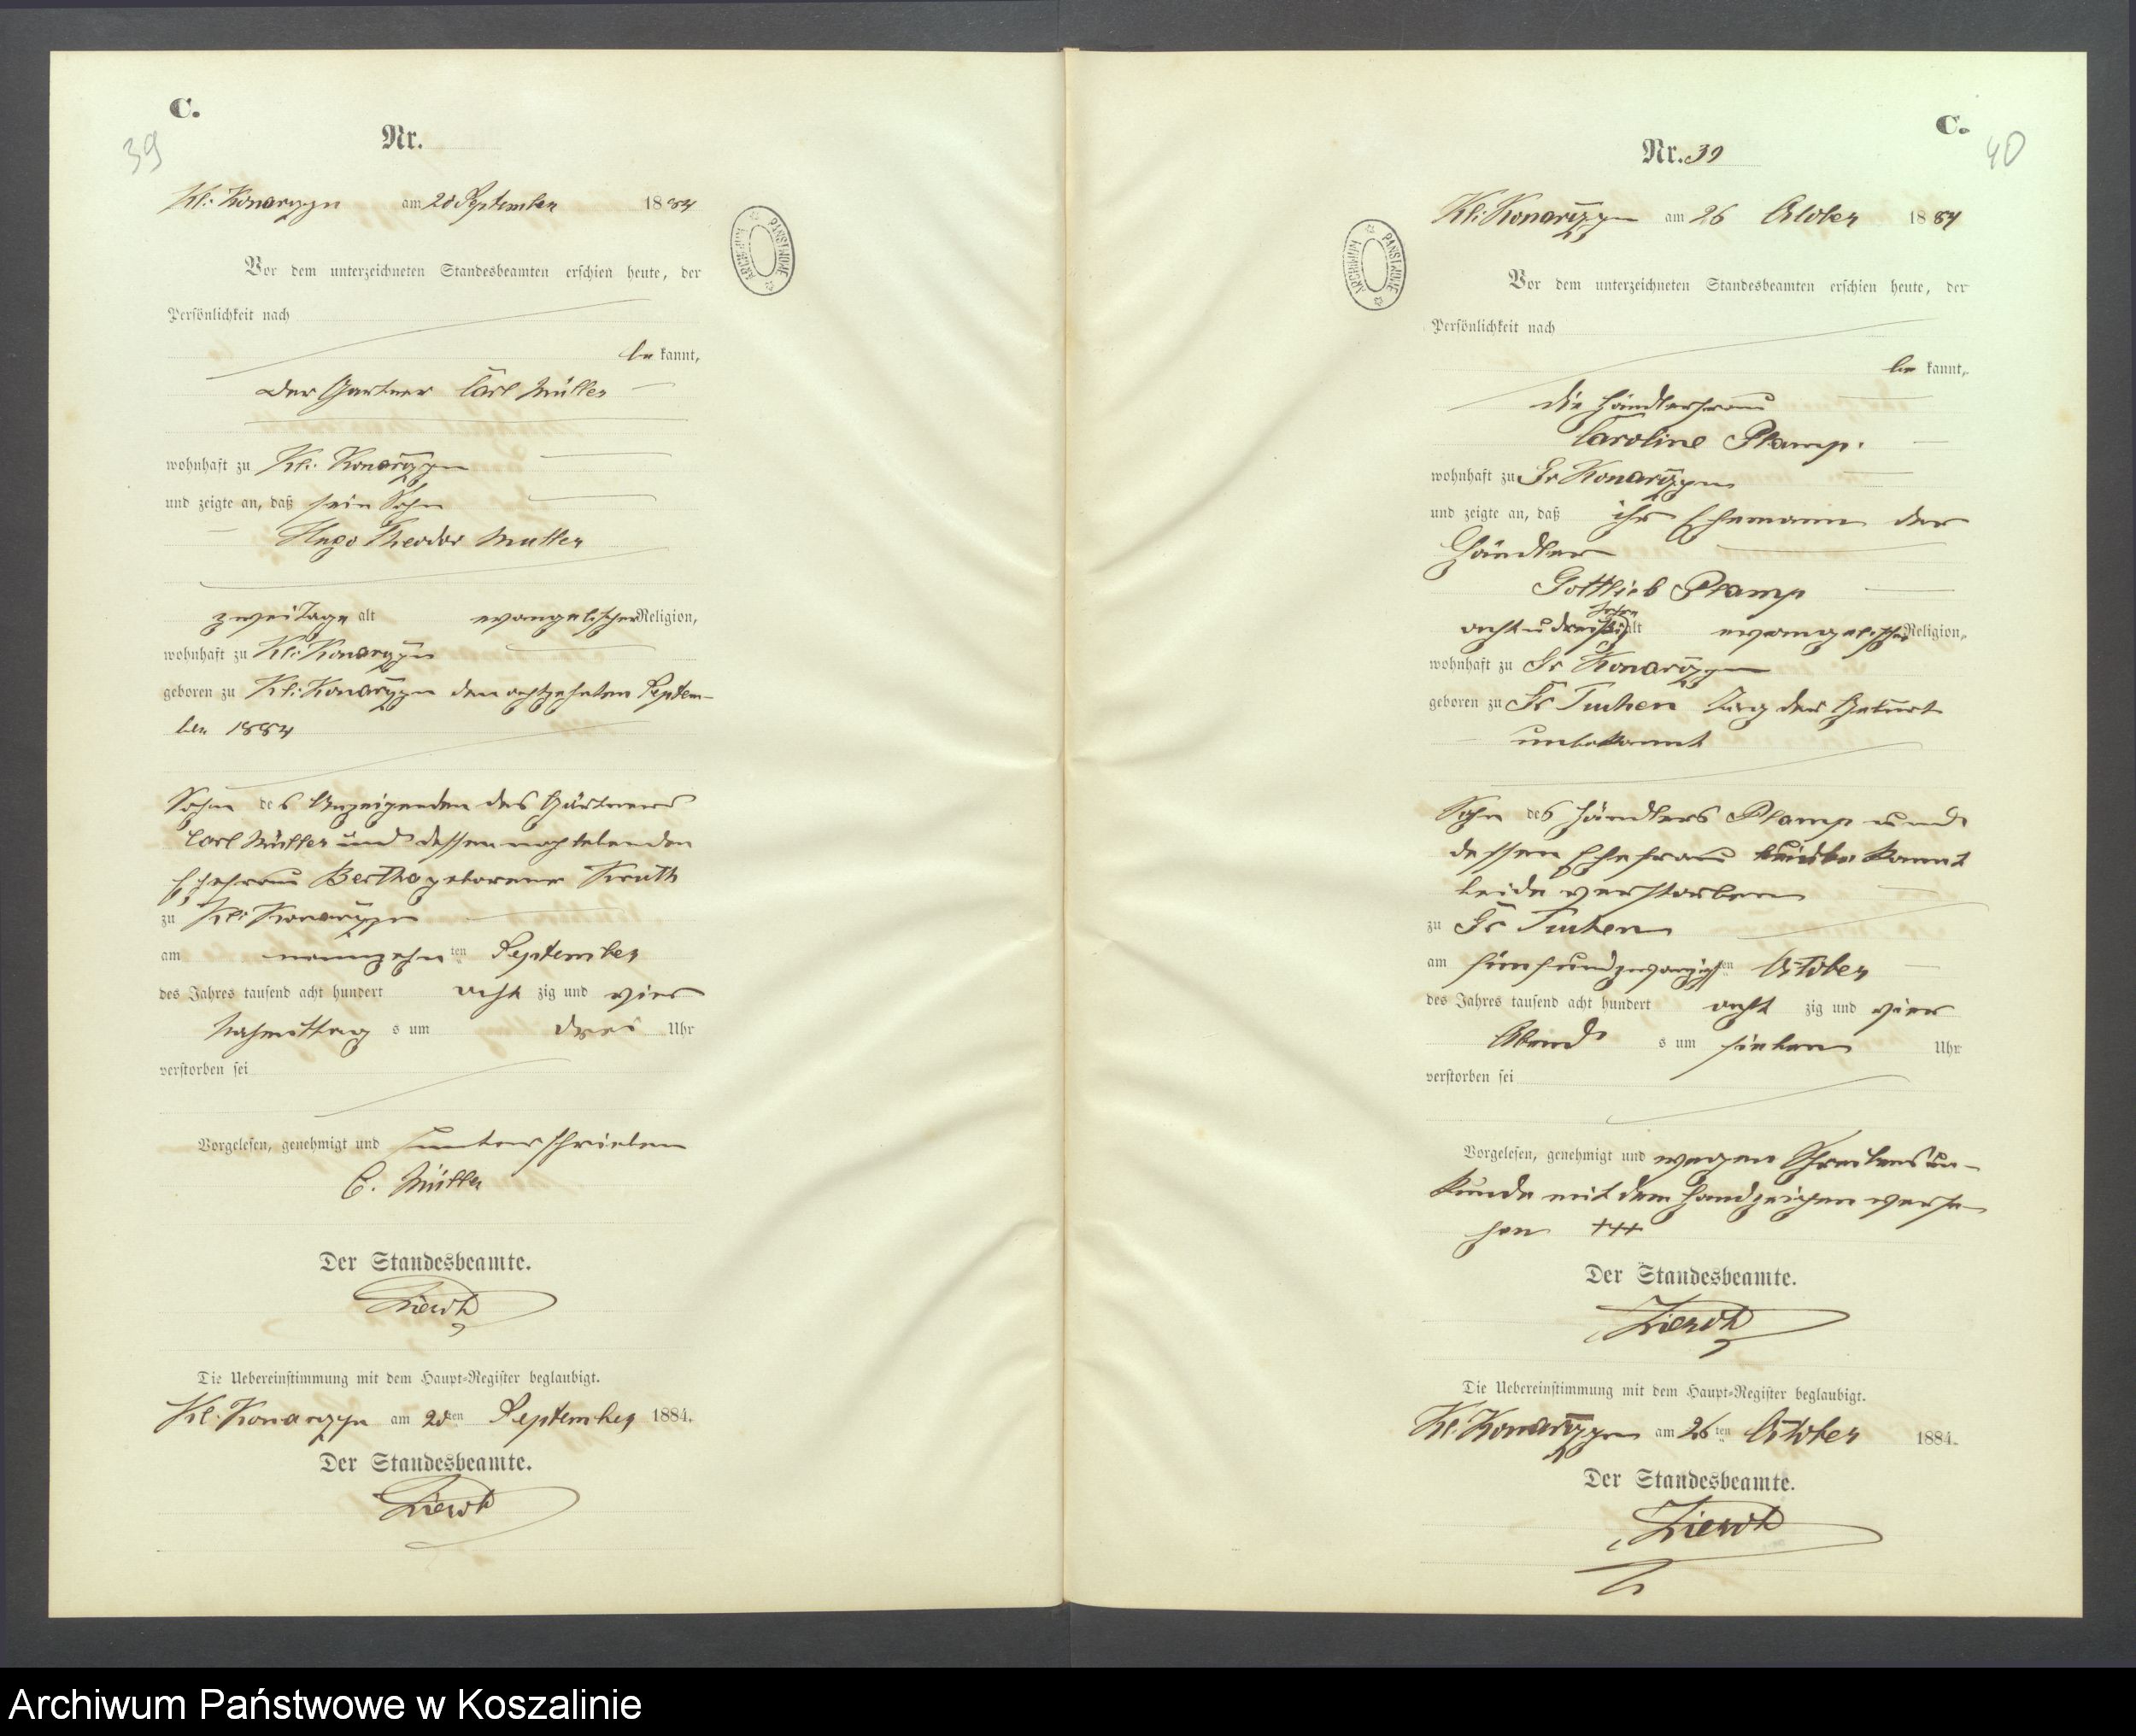 C.
39
Nr.
Kl. Konarzyn am 20 September 1884
ARCHIWUM PAŃSTWOWE
Vor dem unterzeichneten Standesbeamten erschien heute, der
Persönlichkeit nach
be kannt,
der Gartner Carl Müller
wohnhaft zu Kl. Konarzyn
und zeigte an, daß sein Sohn
Hugo Theodor Muller
zwei Tage alt evangelischer Religion,
wohnhaft zu Kl. Konarzyn
geboren zu Kl. Konarzyn den achtzehnten Septem-
ber 1884
Sohn des Anzeigenden des Gärtners
Carl Müller und dessen noch lebenden
Ehefrau Bertha geborener Kruth
zu Kl. Konarzyn
am neunzehnten September
des Jahres tausend acht hundert acht zig und vier
Nachmittag s um drei Uhr
verstorben sei
Vorgelesen, genehmigt und unterschrieben
C. Müller
Der Standesbeamte.
Die Uebereinstimmung mit dem Haupt-Register beglaubigt.
Kl. Konarzyn am 20ten September 1884.
Der Standesbeamte.
C.
40
Nr. 39
Kl. Konarzyn am 26 October 1884
ARCHIWUM PAŃSTWOWE
Vor dem unterzeichneten Standesbeamten erschien heute, der
Persönlichkeit nach
be kannt,
die Händlerfrau
Caroline Plamp.
wohnhaft zu Gr Konarzyn
und zeigte an, daß ihr Ehemann der
Händler
Gottlieb Plamp
acht u dreißig Jahre alt evangelischer Religion,
wohnhaft zu Gr Konarzyn
geboren zu Gr Tuchen Tag der Geburt
unbekannt
Sohn des Händlers Plamp und
dessen Ehefrau unbekannt
beide verstorben
zu Gr Tuchen
am fünfundzwanzigsten October
des Jahres tausend acht hundert acht zig und vier
Abend s um sieben Uhr
verstorben sei
Vorgelesen, genehmigt und wegen Schreibensun-
kunde mit dem Handzeichen verse-
hen +++
Der Standesbeamte.
Die Uebereinstimmung mit dem Haupt-Register beglaubigt.
Kl. Konarzyn am 26ten October 1884.
Der Standesbeamte.
Archiwum Państwowe w Koszalinie